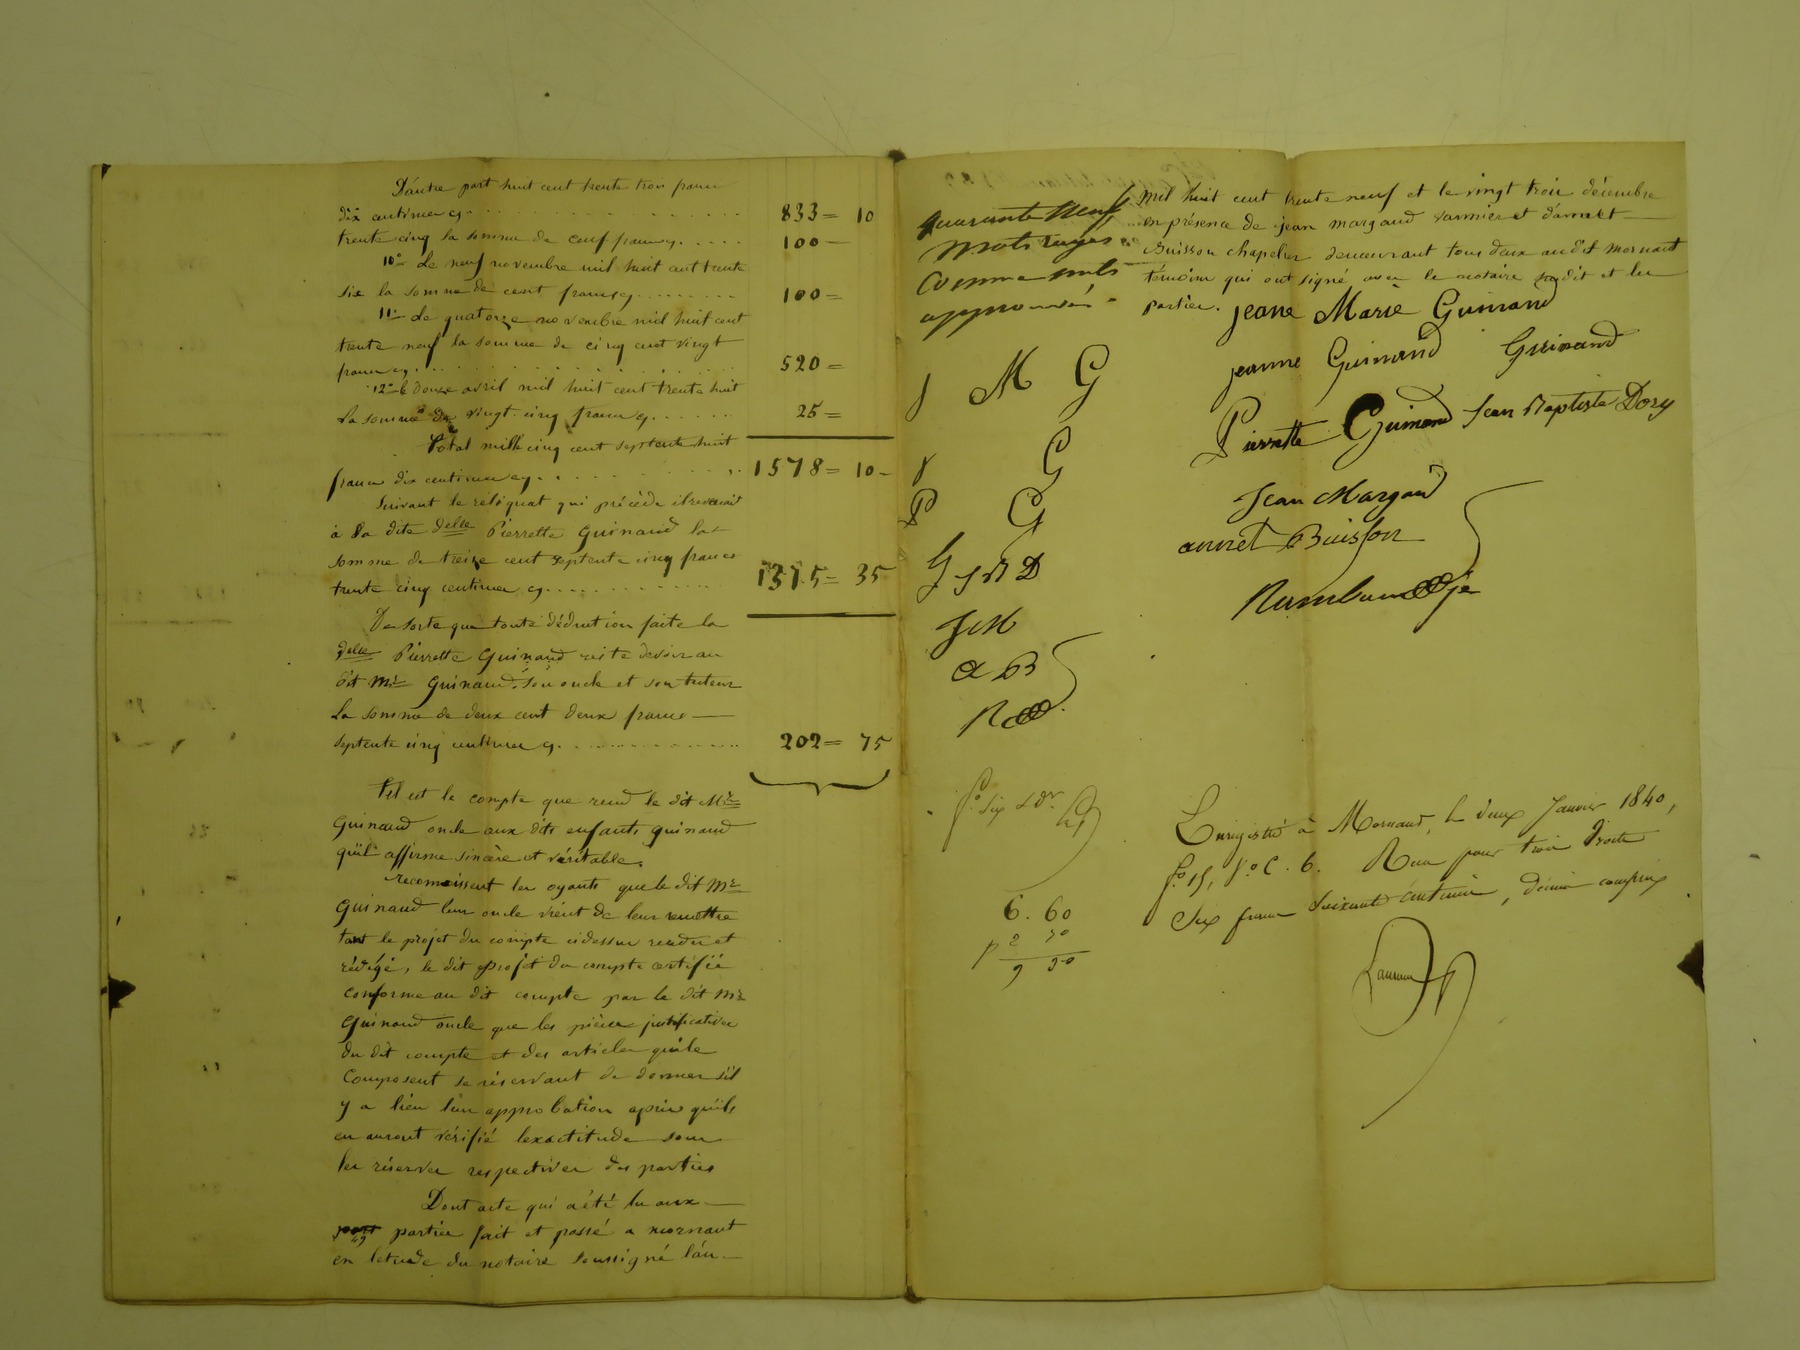 D'autre part huit cent trente trois francs
dix centimes cy. 833 = 10
trente cinq la somme de cent francs cy. 100 =
10° Le neuf novembre mil huit cent trente
six la somme de cent francs cy. 100 =
11° Le quatorze novembre mil huit cent
trente neuf la somme de cinq cent vingt
francs cy. 520 =
12° le douze avril mil huit cent trente huit
la somme de vingt-cinq francs cy. 25 =
Total mille cinq cent septente huit
francs dix centimes cy. 1578 = 10
Suivant le reliquat qui précède il revenait
à la dite delle Pierrette Guinand la
somme de treize cent septente cinq francs
trente cinq centimes cy. 1375 = 35
De sorte que toute déduction faite la
delle Pierrette Guinand reste devoir au
dit Mr Guinand son oncle et son tuteur
La somme de deux cent deux francs
septente cinq centimes cy. 202 = 75
Tel est le compte que rend le dit Mr
Guinand oncle aux dits enfants guinand
qu'il affirme sincère et véritable.
reconnoissent les oyants que le dit Mr
Guinand leur oncle vient de leur remettre
tant le projet du compte cidessus rendu et
rédigé, le dit projet du compte certifié
conforme au dit compte par le dit Mr
Guinand oncle que les pièces justificatives
du dit compte et des articles qui le
Composent se réservant de donner s'il
y a lieu leur approbation après qu'ils
en auront vérifié lexactitude sous
les réserves respectives des parties
Dont acte qui a été lu aux
parties fait et passé a mornant
en letude du notaire soussigné l'an
mil huit cent trente neuf et le vingt trois décembre
en présence de jean margaud et d'annet
Buisson chapelier demeurant tous deux au dit mornant
témoins qui ont signé avec le notaire et les
parties.
quarante neuf
mots rayés
comme nuls
approuvés
jeane Marie Guinand
jeanne Guinand Guinand
Pierrette Guinand Jean Baptiste Dory
Jean Margaud
annet Buisson
j M G
j G
P G
G J B D
J M
a B
R
Enregistré à Mornant, le deux Janvier 1840,
f° 15, V° C. 6. Reçu pour trois droits
Six francs Soixante centimes, décime compris
6. 60